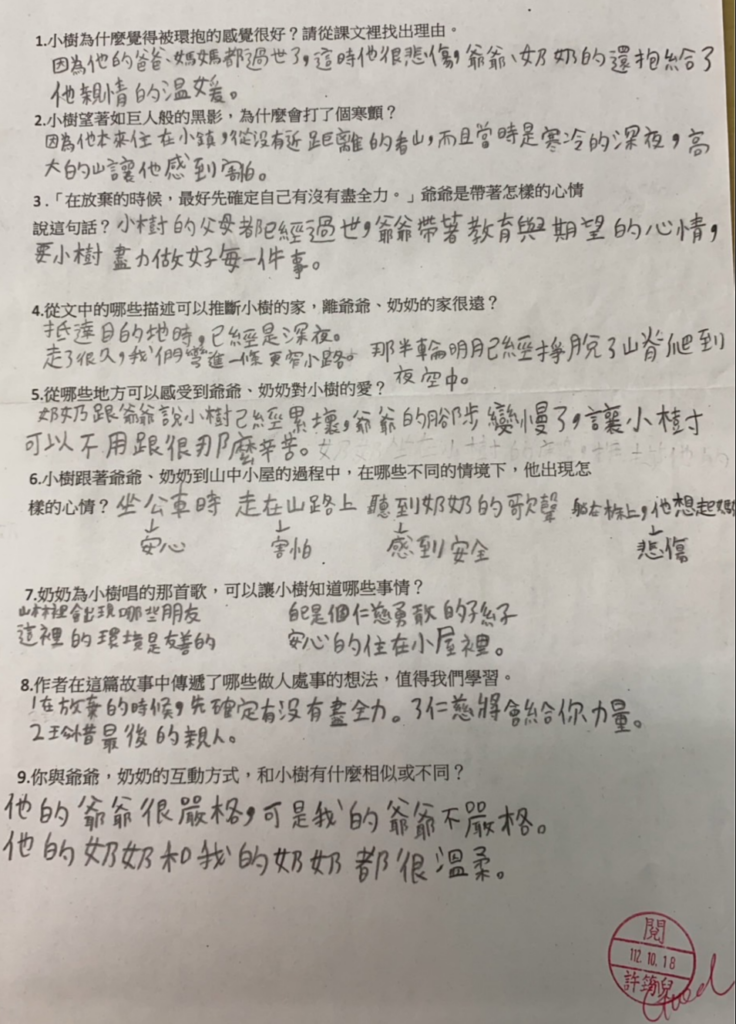 1.小樹為什麼覺得被環抱的感覺很好？請從課文裡找出理由。
因為他的爸爸、媽媽都過世了，這時他很悲傷，爺爺、奶奶的還抱給了
他親情的溫媛。
2.小樹望著如巨人般的黑影，為什麼會打了個寒顫？
因為他本來住在小鎮，從沒有近距離的看山，而且當時是寒冷的深夜，高
大的山讓他感到害怕。
3.「在放棄的時候，最好先確定自己有沒有盡全力。」爺爺是帶著怎樣的心情
說這句話？小樹的父母都已經過世，爺爺帶著教育與期望的心情，
要小樹盡力做好每一件事。
4.從文中的哪些描述可以推斷小樹的家，離爺爺、奶奶的家很遠？
抵達目的地時，已經是深夜。
走了很久，我們彎進一條更窄小路。 那半輪明月已經掙脫了山脊爬到
夜空中。
5.從哪些地方可以感受到爺爺、奶奶對小樹的愛？
奶奶跟爺爺說小樹已經累壞，爺爺的腳步變慢了，讓小樹
可以不用跟很那麼辛苦。
6.小樹跟著爺爺、奶奶到山中小屋的過程中，在哪些不同的情境下，他出現怎
樣的心情？坐公車時 走在山路上 聽到奶奶的歌聲 躺在床上，他想起
安心 害怕 感到安全 悲傷
7.奶奶為小樹唱的那首歌，可以讓小樹知道哪些事情？
山林裡會出現哪些朋友 自己是個仁慈勇敢的孫子
這裡的環境是友善的 安心的住在小屋裡。
8.作者在這篇故事中傳遞了哪些做人處事的想法，值得我們學習。
1在放棄的時候，先確定有沒有盡全力。3仁慈將會給你力量。
2珍惜最後的親人。
9.你與爺爺，奶奶的互動方式，和小樹有什麼相似或不同？
他的爺爺很嚴格，可是我的爺爺不嚴格。
他的奶奶和我的奶奶都很溫柔。
閱
112.10.18
Good